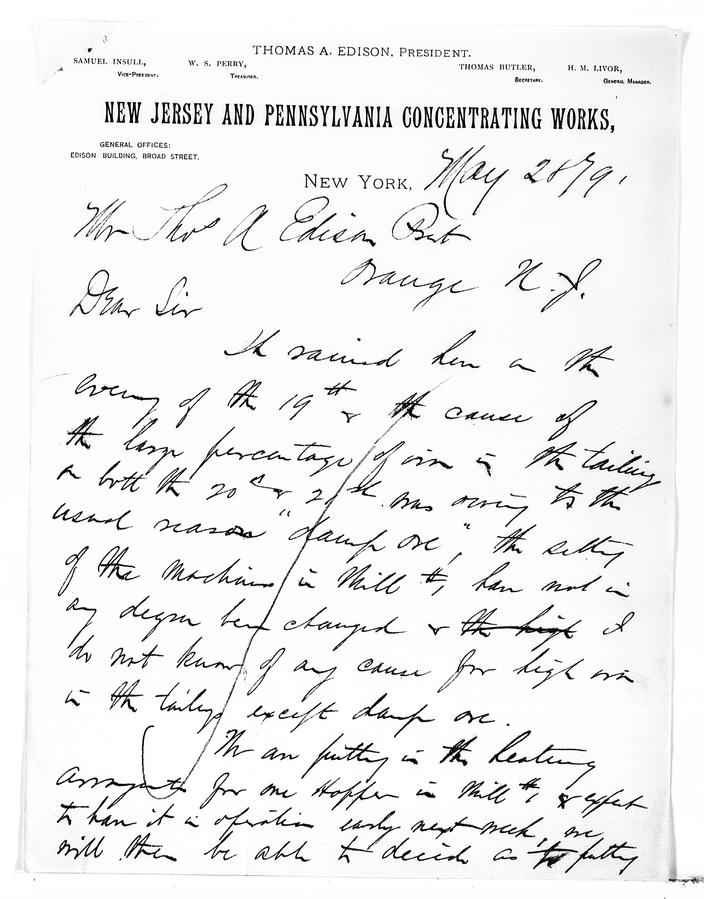 THOMAS A. EDISON, PRESIDENT.
SAMUEL INSULL, W. S. PERRY, THOMAS BUTLER, H. M. LIVOR,
VICE-PRESIDENT. TREASURER. SECRETARY. GENERAL MANAGER.
NEW JERSEY AND PENNSYLVANIA CONCENTRATING WORKS,
GENERAL OFFICES:
EDISON BUILDING, BROAD STREET.
NEW YORK, May 28/91
Mr Thos A Edison Prest
Orange N.J.
Dear Sir
It rained here on the
evening of the 19th & the cause of
the large percentage of iron in the tailings
on both the 20th & was owing to the
usual reason "damp ore", the setting
of the machines in Mill #1 have not in
any degree been changed & the high I
do not know of any cause for high iron
in the tailings except damp ore.
We are putting in the heating
arrangements for one Hopper in Mill #1 & expect
to have it in operation early next week, we
will then be able to decide as to putting